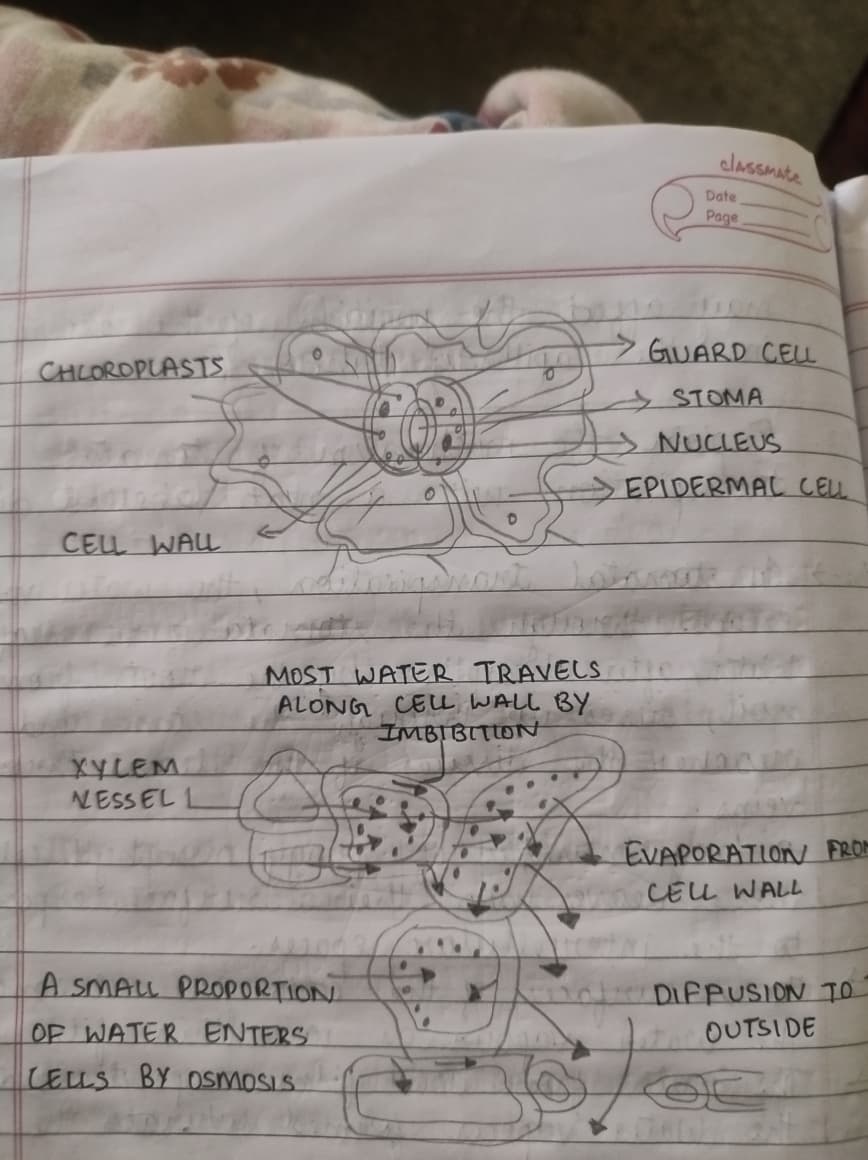 classmate
Date
Page
CHLOROPLASTS
GUARD CELL
STOMA
NUCLEUS
EPIDERMAL CELL
CELL WALL
MOST WATER TRAVELS
ALONG CELL WALL BY
IMBIBITION
XYLEM
VESSEL
EVAPORATION FROM
CELL WALL
A SMALL PROPORTION
OF WATER ENTERS
CELLS BY OSMOSIS
DIFFUSION TO
OUTSIDE